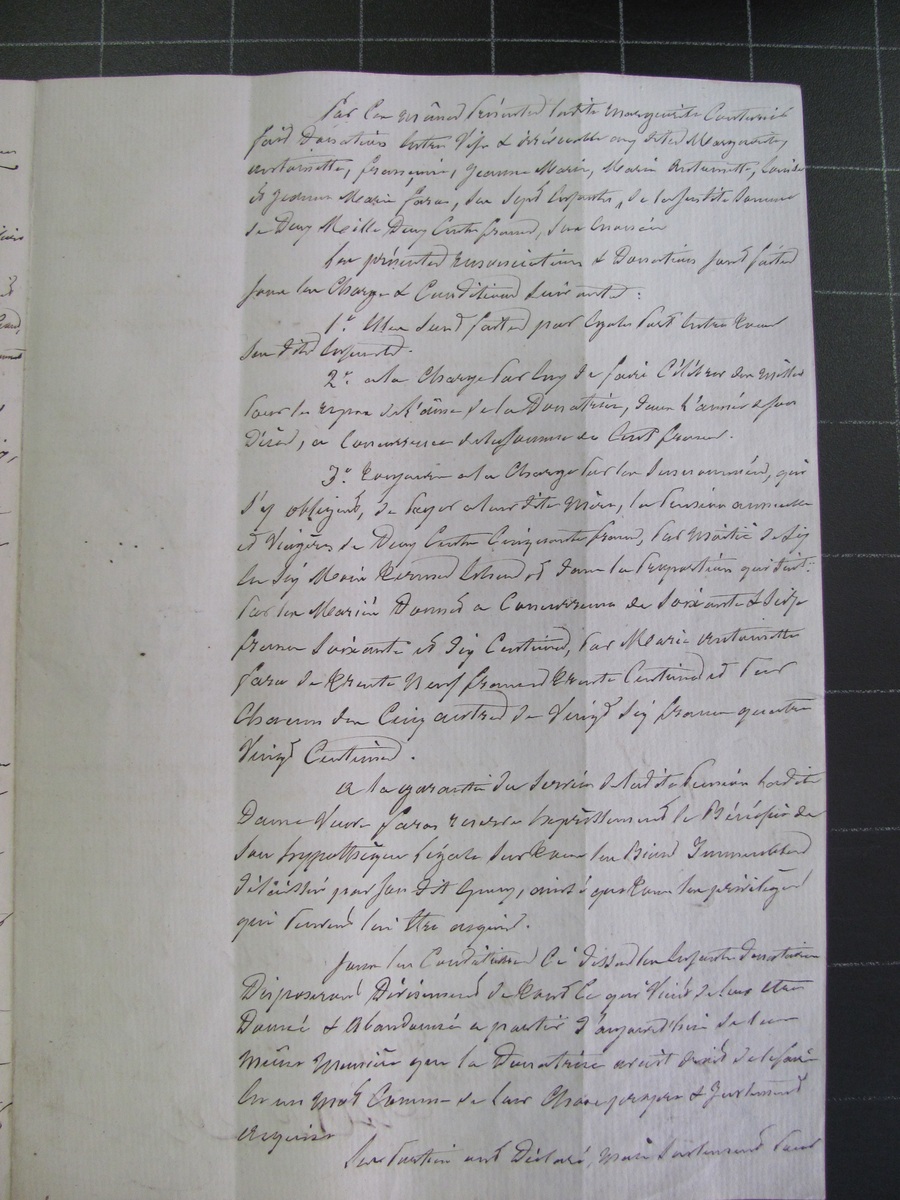 Par Ces mêmes Présentes ladite Marguerite Couturié
fait Donation Entre Vifs & irrévocable auxdites Marguerite,
antoinette, françoise, Jeanne Marie, Marie Antoinette, Louise
et Jeanne Marie faras, Ses Sept Enfants, de la Susdite Somme
de Deux Mille Deux Cents francs,
Les présentes & Donations Sont faites
Sous les Charges & Conditions Suivantes :
1° Elles Sont faites par Egale Part Entre tous
Sesdits Enfants.
2° a la Charge Par Eux de faire Célébrer des Messes
Pour le repos de l'âme de la Donatrice, dans l'année de son
Décès, a Concurrence de la Somme de Cent francs.
3° toujours a la Charge Par les Susnommés, qui
S'y obligent, de Payer a leur dite Mère, la Pension annuelle
et Viagère de Deux Cents Cinquante francs, Par Moitié de Six
En Six Mois & dans la Proportion qui Suit:
Par les Mariés a Concurrence de Soixante & Seize
francs Soixante et dix Centimes, Par Marie Antoinette
faras de trente Neuf francs trente Centimes et Par
Chacun des Cinq autres de Vingt Six francs quatre
Vingt Centimes.
a la garantie du Service de ladite Pension ladite
Dame Veuve faras reserve Expressément le Bénéfice de
Son hypothèque légale Sur tous les Biens Immeubles
délaissés par Son dit Epoux, ainsi que tous les privilèges
qui Peuvent lui être acquis.
Sous les Conditions Ci dessus les Enfants donataires
Disposeront Divisément de tout Ce qui Vient de leur être
Donné & Abandonné a partir d'aujourd'hui de la
Même Manière que la Donatrice avait droit de le faire
En un Mot Comme de leur Chose propre & Justement
acquise
Les Parties ont Déclaré, Mais Seulement Pour